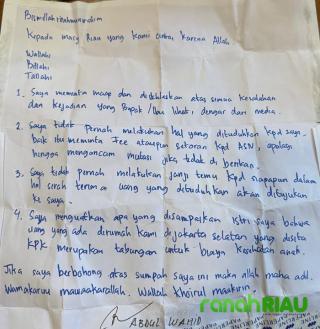 Bismillahirrahmanirrahim
Kepada masy Riau yang kami cintai karena Allah
Wallahi
Billahi
Tallahi
1. Saya meminta maaf dan diikhlaskan atas semua kesalahan
dan kejadian yang Bapak/Ibu lihat, dengar dari media.
2. Saya tidak pernah melakukan hal yang dituduhkan kpd saya.
baik itu meminta fee ataupun setoran kpd ASN, apalagi
hingga mengancam mutasi jika tidak di berikan.
3. Saya tidak pernah melakukan janji temu kpd siapapun dalam
hal serah terima uang yang dituduhkan akan ditujukan
ke saya.
4. Saya menguatkan apa yang disampaikan istri saya bahwa
uang yang ada dirumah kami di jakarta selatan yang disita
KPK merupakan tabungan untuk biaya kesehatan anak.
Jika saya berbohong atas sumpah saya ini maka allah maha adil.
Wamakaruu wamakarallah. Wallah khoirul maakirin.
ABDUL WAHID
ranahRIAU